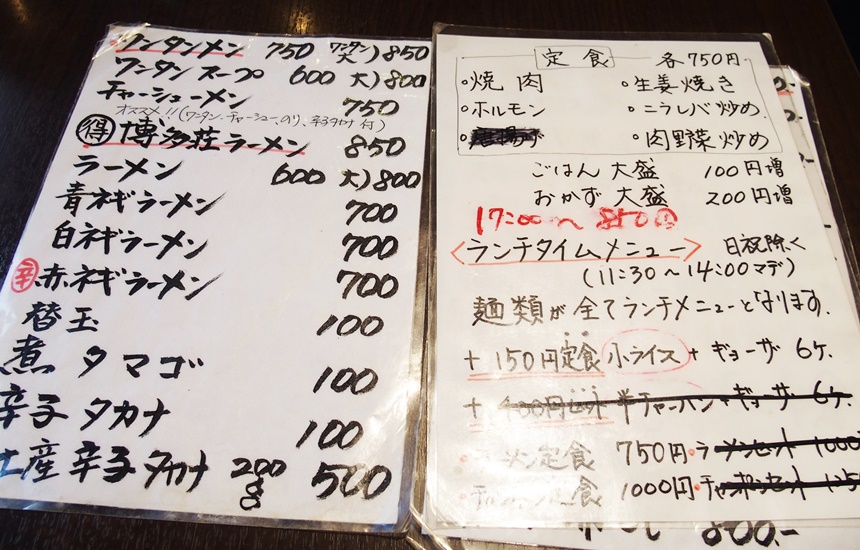 ワンタンメン 750 ワンタン大)850
ワンタン スープ 600 大)800
チャーシューメン 750
オススメ!!(ワンタン、チャーシュー、のり、辛子タカナ 付)
得 博多荘ラーメン 850
ラーメン 600 大)800
青ネギラーメン 700
白ネギラーメン 700
辛 赤ネギラーメン 700
替玉 100
煮 タマゴ 100
辛子 タカナ 100
土産 辛子タカナ 200g 500
定食 各750円
・焼肉 ・生姜焼き
・ホルモン ・ニラレバ炒め
・唐揚げ ・肉野菜炒め
ごはん 大盛 100円増
おかず 大盛 200円増
17:00〜 850円
<ランチタイムメニュー> 日祝除く
(11:30〜14:00マデ)
麺類が全てランチメニューとなります.
+150円定食 小ライス + ギョーザ 6ケ.
+ 400円 半チャーハン+ギョーザ 6ケ.
ラーメン定食 750円・ラーメンセット 1000
定食 1000円・チャーハンセット
800.-